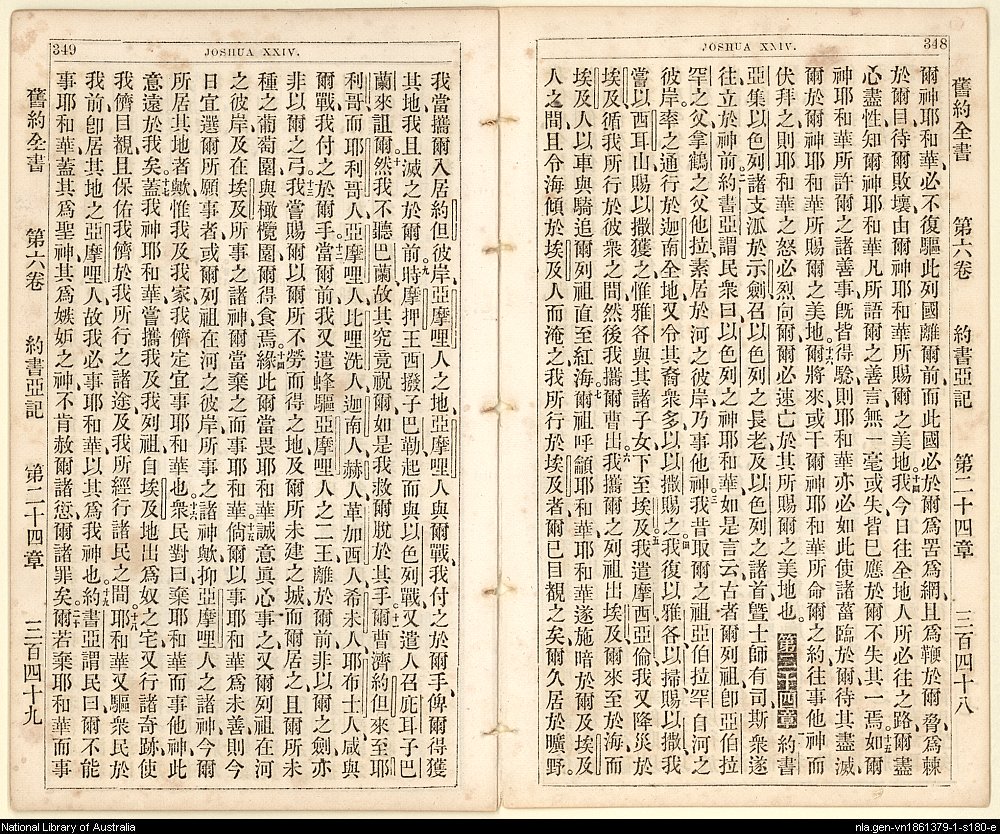 348
JOSHUA XXIV.
舊約全書 第六卷 約書亞記 第二十四章 三百四十八
爾神耶和華、必不復驅此列國離爾前、而此國必於爾爲罟爲網、且爲鞭於爾脅、爲棘
於爾目、待爾敗壞、由爾神耶和華所賜爾之美地。十四我今日往全地人所必往之路、爾盡
心盡性知爾神耶和華凡所語爾之善言、無一毫或失、皆已應於爾、不失其一焉。十五如爾
神耶和華所許爾之諸善事、旣皆得騐、則耶和華亦必如此使諸菑臨於爾、待其盡滅
爾於爾神耶和華所賜爾之美地。十六爾將來或干爾神耶和華所命爾之約、往事他神而
伏拜之、則耶和華之怒必烈向爾、爾必速亡於其所賜爾之美地也。第二十四章 約書
亞集以色列諸支派於示劍、召以色列之長老及以色列之諸首曁士師有司、斯衆遂
往立於神前。二約書亞謂民衆曰、以色列之神耶和華如是言云、古者爾列祖卽亞伯拉
罕之父拿鶴之父他拉、素居於河之彼岸、乃事他神。三我昔取爾之祖亞伯拉罕、自河之
彼岸、率之通行於迦南全地、又令其裔衆多、以以撒賜之。四我復以雅各以掃賜以撒、我
嘗以西耳山賜以撒獲之、惟雅各與其諸子女下至埃及。五我遣摩西亞倫、我又降災於
埃及、循我所行於彼衆之間、然後我攜爾曹出。六我攜爾之列祖出埃及、爾來至於海、而
埃及人以車與騎追爾列祖、直至紅海。七爾祖呼籲耶和華、耶和華遂施暗於爾及埃及
人之間、且令海傾於埃及人而淹之、我所行於埃及者、爾已目覩之矣、爾久居於曠野。
349
JOSHUA XXIV.
我當攜爾入居約但彼岸亞摩哩人之地、亞摩哩人與爾戰、我付之於爾手、俾爾得獲
其地、我且滅之於爾前。九時摩押王西撥子巴勒起而與以色列戰、又遣人召庇耳子巴
蘭來詛爾。十然我不聽巴蘭、故其究竟祝爾、如是我救爾脫於其手。十一爾曹濟約但來至耶
利哥、而耶利哥人亞摩哩人比哩洗人迦南人赫人革加西人希未人耶布士人咸與
爾戰、我付之於爾手。十二當爾前我又遣蜂驅亞摩哩人之二王離於爾前、非以爾之劍、亦
非以爾之弓。十三我嘗賜爾以爾所不勞而得之地、及爾所未建之城而爾居之、且爾所未
種之葡萄園與橄欖園、爾得食焉。十四緣此爾當畏耶和華、誠意眞心事之、又爾列祖在河
之彼岸及在埃及所事之諸神、爾當棄之、而事耶和華。十五倘爾以事耶和華爲未善、則今
日宜選爾所願事者、或爾列祖在河之彼岸所事之諸神歟、抑亞摩哩人之諸神、今爾
所居其地者歟、惟我及我家、我儕定宜事耶和華也。十六衆民對曰、棄耶和華而事他神、此
意遠於我矣。十七蓋我神耶和華、嘗攜我及我列祖自埃及地出爲奴之宅、又行諸奇跡、使
我儕目覩、且保佑我儕於我所行之諸途、及我所經行諸民之間。十八耶和華又驅衆民於
我前、卽居其地之亞摩哩人、故我必事耶和華、以其爲我神也。十九約書亞謂民曰、爾不能
事耶和華、蓋其爲聖神、其爲嫉妒之神、不肯赦爾諸愆爾諸罪矣。二十爾若棄耶和華而事
舊約全書 第六卷 約書亞記 第二十四章 三百四十九
National Library of Australia
nla.gen-vn1861379-1-s180-e